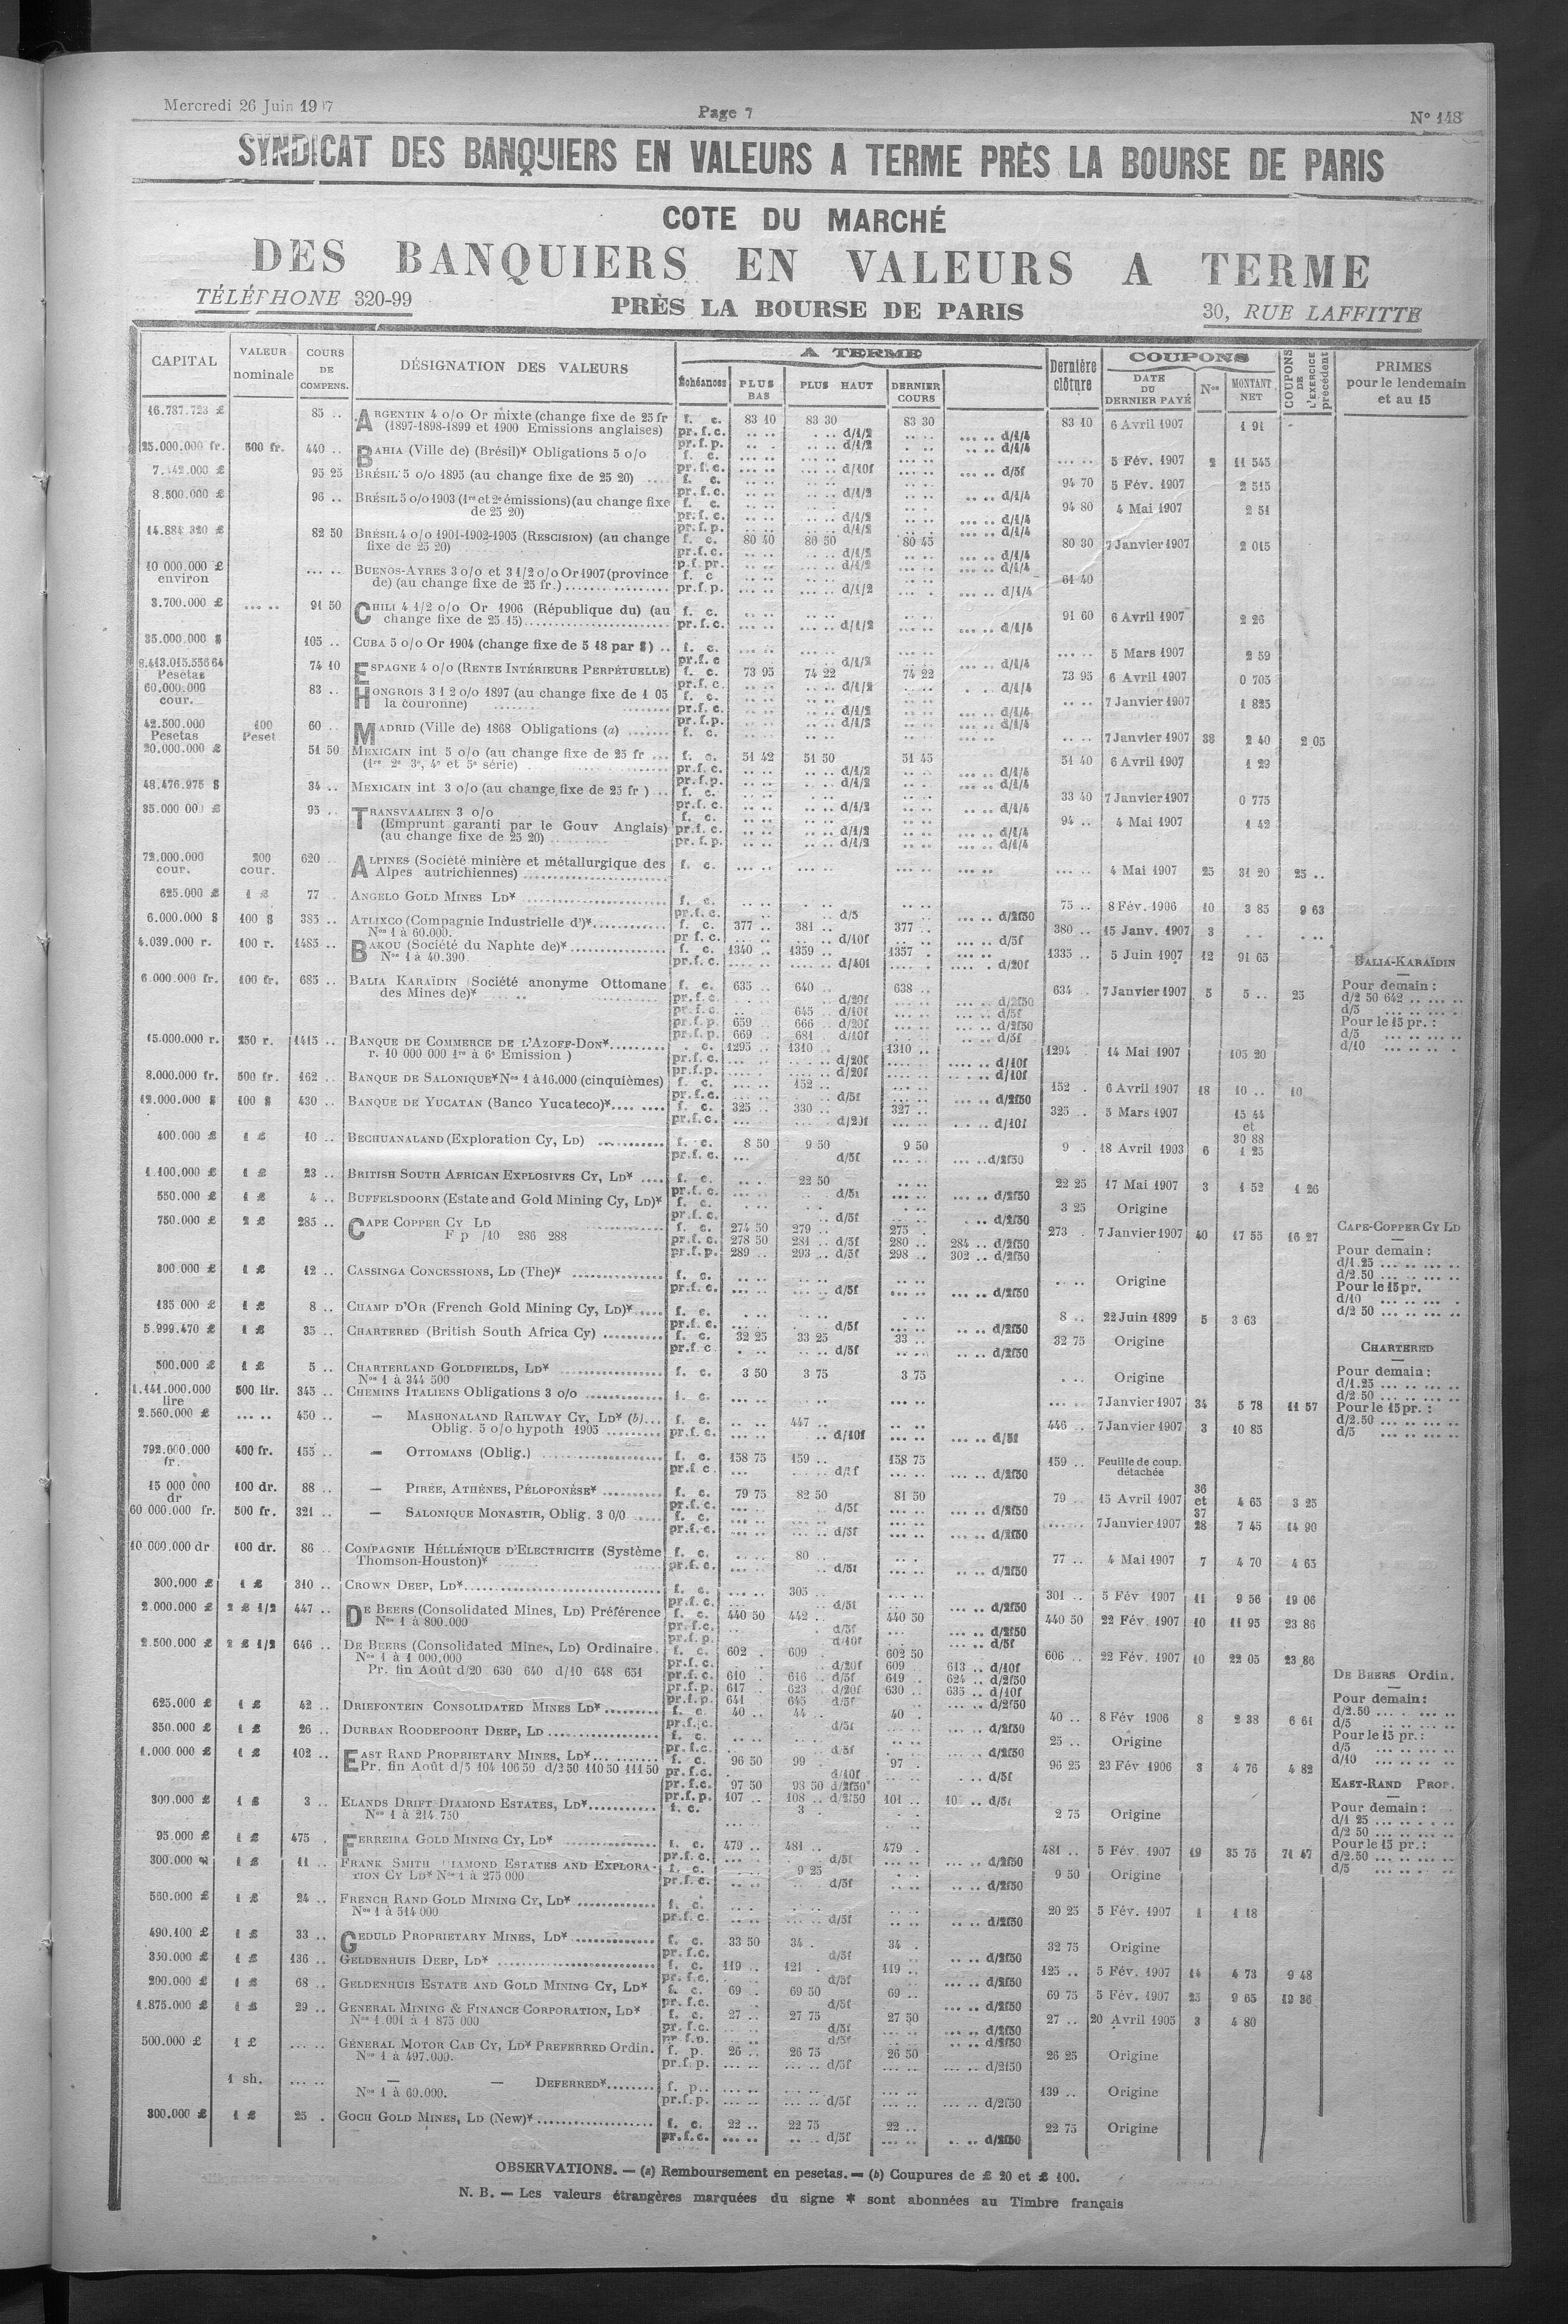 Mercredi 26 Juin 19 7
Page 7
N° 148
SYNDICAT DES BANQUIERS EN VALEURS A TERME PRÈS LA BOURSE DE PARIS
COTE DU MARCHÉ
DES BANQUIERS EN VALEURS A TERME
TÉLÉPHONE 320-99
PRÈS LA BOURSE DE PARIS
30, RUE LAFFITTE
CAPITAL VALEUR nominale COURS DE COMPENS. DÉSIGNATION DES VALEURS A TERME Échéances PLUS BAS PLUS HAUT DERNIER COURS Dernière clôture COUPONS DATE DU DERNIER PAYÉ Nos MONTANT NET COUPONS DE L'EXERCICE précédent PRIMES pour le lendemain et au 15
16.787.723 £ 85 .. ARGENTIN 4 o/o Or mixte (change fixe de 25 fr f. c. 83 10 83 30 83 30 83 10 6 Avril 1907 1 91
(1897-1898-1899 et 1900 Emissions anglaises) pr.f.c. d/1/2 d/1/4
25.000.000 fr. 500 fr. 440 .. BAHIA (Ville de) (Brésil)* Obligations 5 o/o f. c. 5 Fév. 1907 2 11 545
7.142.000 £ 95 25 BRÉSIL 5 o/o 1895 (au change fixe de 25 20) f. c. 94 70 5 Fév. 1907 2 515
8.500.000 £ 96 .. BRÉSIL 5 o/o 1903 (1re et 2e émissions) (au change fixe f. c. 94 80 4 Mai 1907 2 51
de 25 20)
14.884 320 £ 82 50 BRÉSIL 4 o/o 1901-1902-1905 (RESCISION) (au change f. c. 80 40 80 50 80 45 80 30 7 Janvier 1907 2 015
fixe de 25 20)
10 000.000 £ environ BUENOS-AYRES 3 o/o et 3 1/2 o/o Or 1907 (province f. c 61 40
de) (au change fixe de 25 fr.) pr.f.p. d/1/2 d/1/4
3.700.000 £ 91 50 CHILI 4 1/2 o/o Or 1906 (République du) (au f. c. 91 60 6 Avril 1907 2 26
change fixe de 25 15) pr.f.c. d/1/2 d/1/4
35.000.000 $ 105 .. CUBA 5 o/o Or 1904 (change fixe de 5 18 par $) f. c. 5 Mars 1907 2 59
8.413.015.556 64 Pesetas 74 10 ESPAGNE 4 o/o (RENTE INTÉRIEURE PERPÉTUELLE) f. c. 73 95 74 22 74 22 73 95 6 Avril 1907 0 705
60.000.000 cour. 83 .. HONGROIS 3 1 2 o/o 1897 (au change fixe de 1 05 f. c. 7 Janvier 1907 1 825
la couronne)
42.500.000 Pesetas 100 Peset 60 .. MADRID (Ville de) 1868 Obligations (a) f. c. 7 Janvier 1907 38 2 40 2 05
20.000.000 £ 51 50 MEXICAIN int 5 o/o (au change fixe de 25 fr f. c. 51 42 51 50 51 45 51 40 6 Avril 1907 1 29
(1re 2e 3e, 4e et 5e série)
48.476.975 $ 34 .. MEXICAIN int 3 o/o (au change fixe de 25 fr ) f. c. 33 40 7 Janvier 1907 0 775
35.000 00 £ 95 .. TRANSVAALIEN 3 o/o f. c. 94 .. 4 Mai 1907 1 42
(Emprunt garanti par le Gouv Anglais) pr.f.c. d/1/2 d/1/4
(au change fixe de 25 20) pr.f.p. d/1/2 d/1/4
72.000.000 cour. 200 cour. 620 .. ALPINES (Société minière et métallurgique des f. c. 4 Mai 1907 25 31 20 25 ..
Alpes autrichiennes)
625.000 £ 1 £ 77 ANGELO GOLD MINES LD* f. c. 75 .. 8 Fév. 1906 10 3 85 9 63
6.000.000 $ 100 $ 385 .. ATLIXCO (Compagnie Industrielle d')* f. c. 377 .. 381 .. 377 .. 380 .. 15 Janv. 1907 3
Nos 1 à 60.000. pr f. c. d/10f d/5f
4.039.000 r. 100 r. 1485 .. BAKOU (Société du Naphte de)* f. c. 1340 .. 1359 .. 1357 . 1335 .. 5 Juin 1907 12 91 65
Nos 1 à 40.390 pr.f.c. d/20f
6.000.000 fr. 100 fr. 685 .. BALIA KARAÏDIN Société anonyme Ottomane f. c. 635 .. 640 .. 638 .. 634 7 Janvier 1907 5 5 .. 25
des Mines de)* pr.f.c. d/20f d/2f50
645 .. d/10f d/5f
pr.f.p. 659 666 .. d/20f d/2f50
pr.f.p. 669 681 .. d/10f d/5f
BALIA-KARAÏDIN
Pour demain :
d/2 50 642
d/5
Pour le 15 pr. :
d/5
d/10
15.000.000 r. 250 r. 1415 .. BANQUE DE COMMERCE DE L'AZOFF-DON* c. 1295 .. 1310 .. 1310 .. 1294 14 Mai 1907 105 20
r. 10 000 000 1re à 6e Emission )
8.000.000 fr. 500 fr. 162 .. BANQUE DE SALONIQUE* Nos 1 à 16.000 (cinquièmes) f. c. 152 .. 152 6 Avril 1907 18 10 .. 10
12.000.000 $ 100 $ 430 .. BANQUE DE YUCATAN (Banco Yucateco)* f. c. 325 .. 330 .. 327 .. 325 .. 5 Mars 1907 15 44 et 30 88
400.000 £ 1 £ 10 .. BECHUANALAND (Exploration Cy, LD) f. c. 8 50 9 50 9 50 9 . 18 Avril 1903 6 1 25
1.100.000 £ 1 £ 23 .. BRITISH SOUTH AFRICAN EXPLOSIVES CY, LD* f. c. 22 50 22 25 17 Mai 1907 3 1 52 1 26
550.000 £ 1 £ 4 .. BUFFELSDOORN (Estate and Gold Mining Cy, LD)* f. c. 3 25 Origine
750.000 £ 2 £ 285 .. CAPE COPPER CY LD f. c. 274 50 279 .. 275 . 273 . 7 Janvier 1907 40 17 55 16 27
F p /10 286 288 pr.f.c. 278 50 281 .. d/5f 280 .. 284 .. d/2f50
pr.f.p. 289 .. 293 .. d/5f 298 .. 302 .. d/2f50
CAPE-COPPER CY LD
Pour demain :
d/1.25
d/2.50
Pour le 15 pr.
d/10
d/2 50
300.000 £ 1 £ 12 .. CASSINGA CONCESSIONS, LD (The)* f. c. Origine
135 000 £ 1 £ 8 .. CHAMP D'OR (French Gold Mining Cy, LD)* f. c. 8 .. 22 Juin 1899 5 3 63
5.999.470 £ 1 £ 35 .. CHARTERED (British South Africa Cy) f. c. 32 25 33 25 33 .. 32 75 Origine
500.000 £ 1 £ 5 .. CHARTERLAND GOLDFIELDS, LD* f. c. 3 50 3 75 3 75 Origine
Nos 1 à 344 500
CHARTERED
Pour demain :
d/1.25
d/2 50
Pour le 15 pr. :
d/2.50
d/5
1.141.000.000 lire 500 lir. 345 .. CHEMINS ITALIENS Obligations 3 o/o f. c. 7 Janvier 1907 34 5 78 11 57
2.560.000 £ 450 .. — MASHONALAND RAILWAY CY, LD* (b) f. c. 447 .. 446 .. 7 Janvier 1907 3 10 85
Oblig. 5 o/o hypoth 1905 pr.f.c. d/10f d/5f
792.000.000 fr. 400 fr. 155 .. — OTTOMANS (Oblig.) f. c. 158 75 159 .. 158 75 159 .. Feuille de coup. détachée
15 000 000 dr 100 dr. 88 .. — PIRÉE, ATHÈNES, PÉLOPONÈSE* f. c. 79 75 82 50 81 50 79 .. 15 Avril 1907 36 et 37 4 65 3 25
60 000.000 fr. 500 fr. 321 .. — SALONIQUE MONASTIR, Oblig. 3 0/0 f. c. 7 Janvier 1907 28 7 45 14 90
10 000.000 dr 100 dr. 86 .. COMPAGNIE HÉLLÉNIQUE D'ELECTRICITE (Système f. c. 80 77 .. 4 Mai 1907 7 4 70 4 65
Thomson-Houston)*
300.000 £ 1 £ 310 .. CROWN DEEP, LD* f. c. 305 .. 301 .. 5 Fév 1907 11 9 56 19 06
2.000.000 £ 2 £ 1/2 447 .. DE BEERS (Consolidated Mines, LD) Préférence f. c. 440 50 442 .. 440 50 440 50 22 Fév. 1907 10 11 95 23 86
Nos 1 à 800.000
2.500.000 £ 2 £ 1/2 646 .. DE BEERS (Consolidated Mines, LD) Ordinaire f. c. 602 . 609 602 50 606 .. 22 Fév. 1907 10 22 05 23 86
Nos 1 à 1 000.000 pr.f.c. d/20f 609 613 .. d/10f
Pr. fin Août d/20 630 640 d/10 648 651 pr.f.c. 610 616 .. d/5f 619 . 624 .. d/2f50
pr.f.p. 617 623 .. d/20f 630 .. 635 .. d/10f
pr.f.p. 641 645 .. d/5f d/2f50
DE BEERS Ordin.
Pour demain:
d/2.50
d/5
Pour le 15 pr. :
d/5
d/10
625.000 £ 1 £ 42 .. DRIEFONTEIN CONSOLIDATED MINES LD* f. c. 40 .. 44 .. 40 . 40 .. 8 Fév 1906 8 2 38 6 61
350.000 £ 1 £ 26 .. DURBAN ROODEPOORT DEEP, LD f. c. 25 .. Origine
1.000 000 £ 1 £ 102 .. EAST RAND PROPRIETARY MINES, LD* f. c. 96 50 99 . 97 . 96 25 23 Fév 1906 3 4 76 4 82
Pr. fin Août d/5 104 106 50 d/2 50 110 50 111 50 pr.f.c. d/10f d/5f
pr.f.c. 97 50 98 50 d/2f50
pr.f.p. 107 .. 108 .. d/2f50 101 .. d/5f
EAST-RAND PROP.
Pour demain :
d/1 25
d/2 50
Pour le 15 pr. :
d/2.50
d/5
300.000 £ 1 £ 3 .. ELANDS DRIFT DIAMOND ESTATES, LD* f. c. 3 2 75 Origine
Nos 1 à 214.750
95.000 £ 1 £ 475 . FERREIRA GOLD MINING CY, LD* f. c. 479 .. 481 .. 479 . 481 .. 5 Fév. 1907 19 35 75 71 47
300.000 1 £ 11 .. FRANK SMITH DIAMOND ESTATES AND EXPLORA- f. c. 9 25 9 50 Origine
TION CY LD* Nos 1 à 275 000
560.000 £ 1 £ 24 .. FRENCH RAND GOLD MINING CY, LD* f. c. 20 25 5 Fév. 1907 1 1 18
Nos 1 à 514 000
490.100 £ 1 £ 33 .. GEDULD PROPRIETARY MINES, LD* f. c. 33 50 34 . 34 . 32 75 Origine
350.000 £ 1 £ 136 .. GELDENHUIS DEEP, LD* f. c. 119 .. 121 . 119 .. 125 .. 5 Fév. 1907 14 4 73 9 48
200.000 £ 1 £ 68 .. GELDENHUIS ESTATE AND GOLD MINING CY, LD* f. c. 69 .. 69 50 69 .. 69 75 5 Fév. 1907 25 9 65 19 36
1.875.000 £ 1 £ 29 .. GENERAL MINING & FINANCE CORPORATION, LD* f. c. 27 .. 27 75 27 50 27 .. 20 Avril 1905 3 4 80
Nos 1.001 à 1 875 000
500.000 £ 1 £ GÉNÉRAL MOTOR CAB CY, LD* PREFERRED Ordin. f. p. 26 .. 26 75 26 50 26 25 Origine
Nos 1 à 497.000. pr.f.p. d/5f d/2f50
1 sh. — — DEFERRED* f. p. 139 .. Origine
Nos 1 à 60.000. pr.f.p. d/5f d/2f50
300.000 £ 1 £ 25 . GOCH GOLD MINES, LD (New)* f. c. 22 .. 22 75 22 .. 22 75 Origine
pr.f.c. d/5f d/2f50
OBSERVATIONS. — (a) Remboursement en pesetas. — (b) Coupures de £ 20 et £ 100.
N. B. — Les valeurs étrangères marquées du signe * sont abonnées au Timbre français